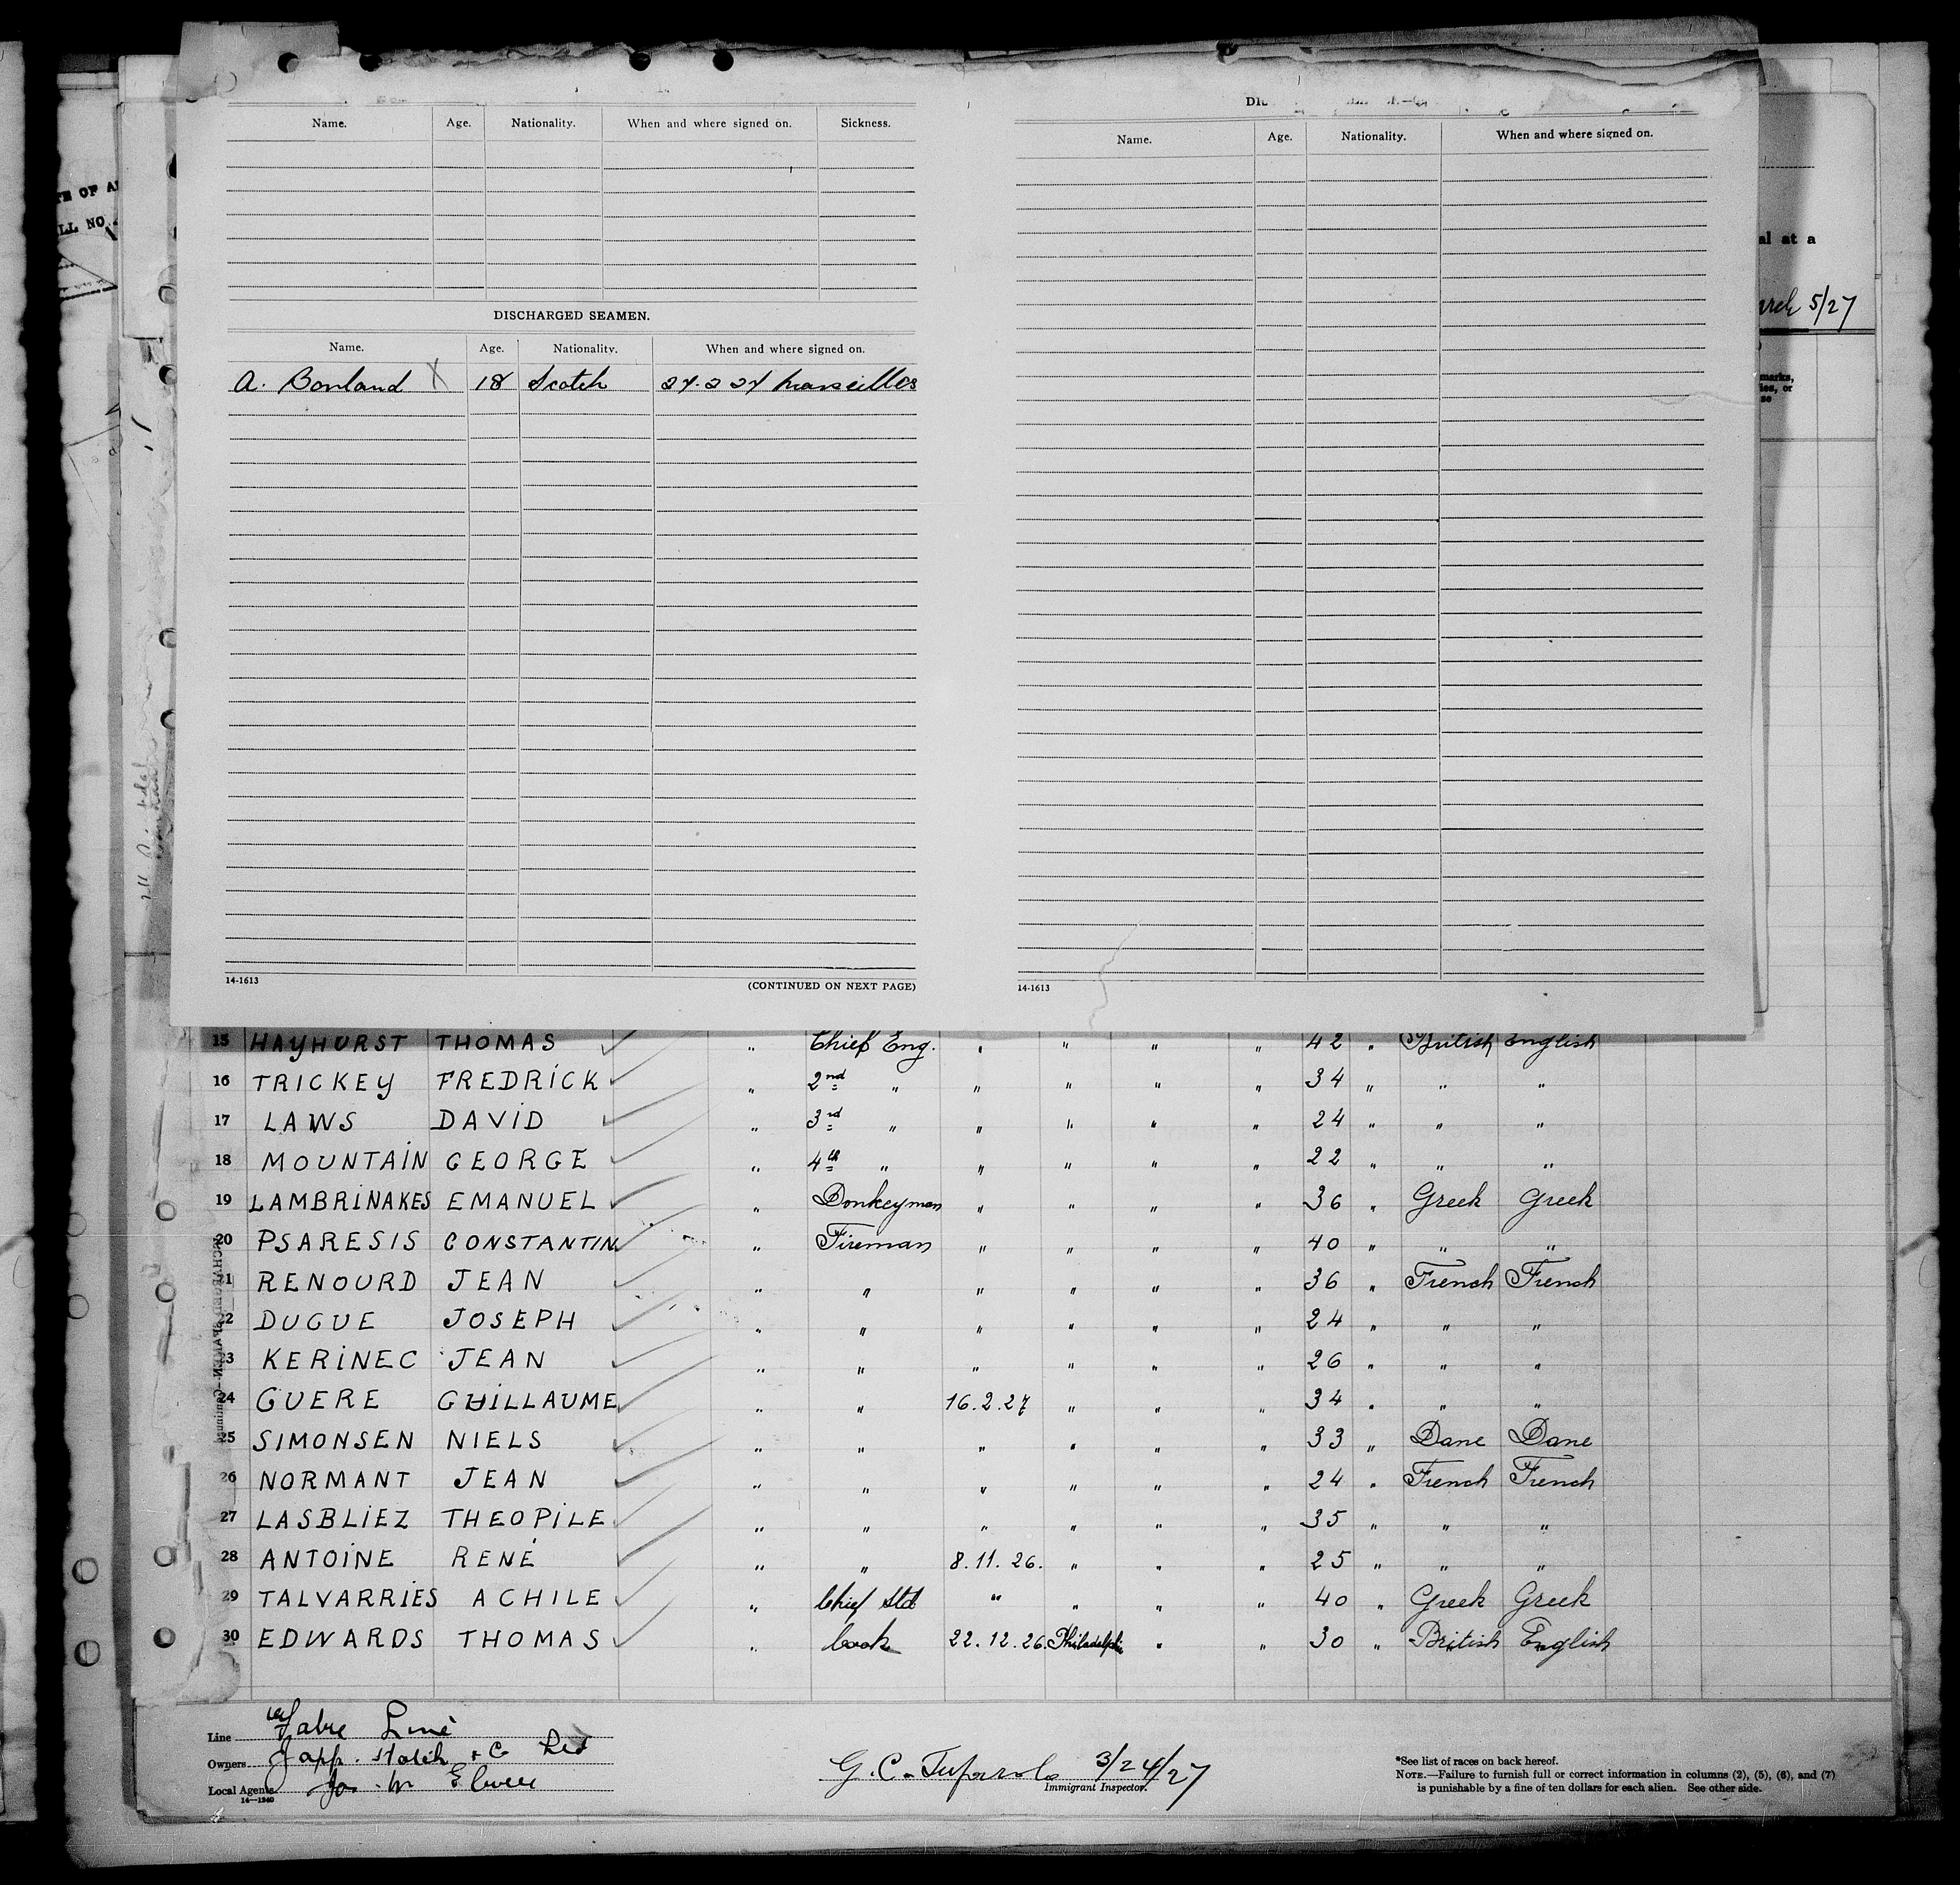 TE OF A
LL NO.
al at a
5/27
marks,
ies, or
se
Name. Age. Nationality. When and where signed on. Sickness.
DISCHARGED SEAMEN.
Name. Age. Nationality. When and where signed on.
A. Bonland X 18 Scotch 27.2 27 Marseilles
14-1613 (CONTINUED ON NEXT PAGE)
Name. Age. Nationality. When and where signed on.
14-1613
15 HAYHURST THOMAS ✓ " Chief Eng. " " " " 42 " British English
16 TRICKEY FREDRICK ✓ " 2nd " " " " " 34 " " "
17 LAWS DAVID ✓ " 3rd " " " " " 24 " " "
18 MOUNTAIN GEORGE ✓ " 4th " " " " " 22 " " "
19 LAMBRINAKES EMANUEL ✓ " Donkeyman " " " " 36 " Greek Greek
20 PSARESIS CONSTANTIN ✓ " Fireman " " " " 40 " " "
21 RENOURD JEAN ✓ " " " " " " 36 " French French
22 DUGUE JOSEPH ✓ " " " " " " 24 " " "
23 KERINEC JEAN ✓ " " " " " " 26 " " "
24 GUERE GUILLAUME ✓ " " 16.2.27 " " " 34 " " "
25 SIMONSEN NIELS ✓ " " " " " " 33 " Dane Dane
26 NORMANT JEAN ✓ " " " " " " 24 " French French
27 LASBLIEZ THEOPILE ✓ " " " " " " 35 " " "
28 ANTOINE RENÉ ✓ " " 8.11.26. " " " 25 " " "
29 TALVARRIES ACHILE ✓ " Chief Std " " " " 40 " Greek Greek
30 EDWARDS THOMAS ✓ " Cook 22.12.26. Philadelphi " " 30 " British English
Line Fabre Line
Owners Japp. Hatch & C Ltd
Local Agents Jas. M
14—1240
G. C. 3/24/27
Immigrant Inspector.
*See list of races on back hereof.
NOTE.—Failure to furnish full or correct information in columns (2), (5), (6), and (7)
is punishable by a fine of ten dollars for each alien. See other side.